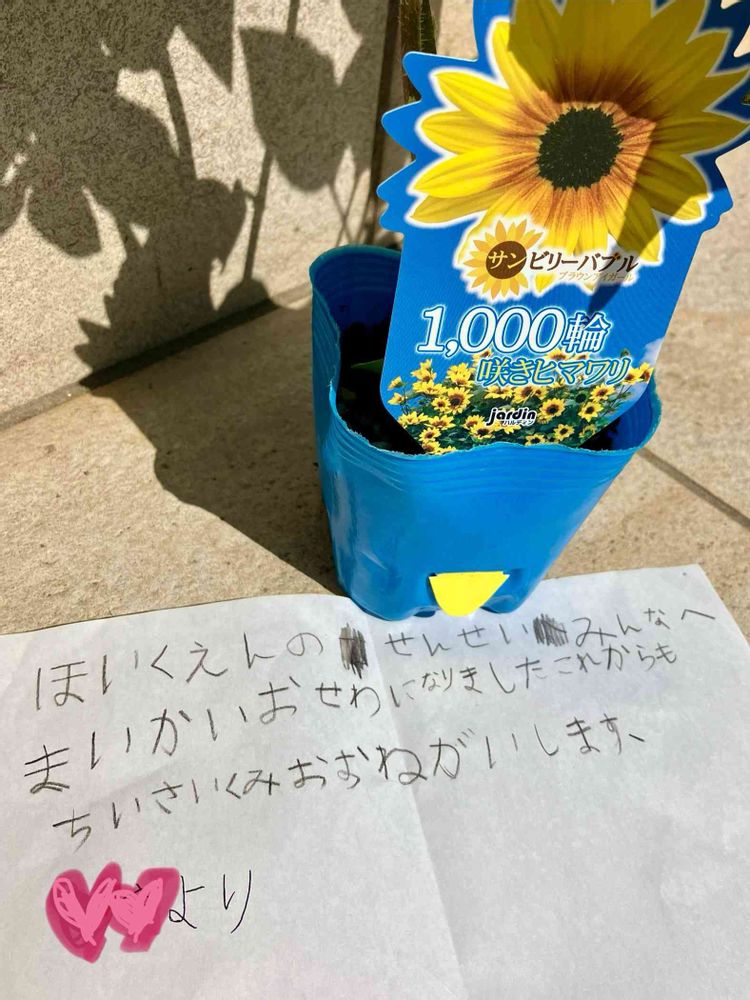 サンビリーバブル
ブラウンアイガール
1,000輪
咲きヒマワリ
jardin
ほいくえんの せんせい みんなへ
まいかいおせわになりましたこれからも
ちいさいくみおおねがいします、
より